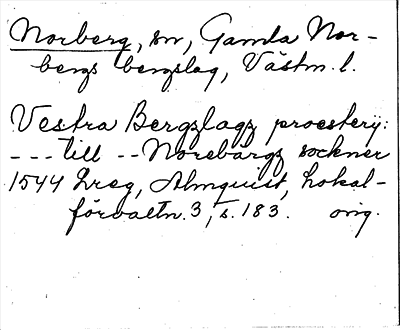 Norberg, sn, Gamla Nor-
bergs bergslag, Västm. l.
Vestra Bergzlagz proestery:
--- till -- Norebärgz sockner
1544 Lreg, Almquist, Lokal-
förvaltn. 3, s. 183. orig.